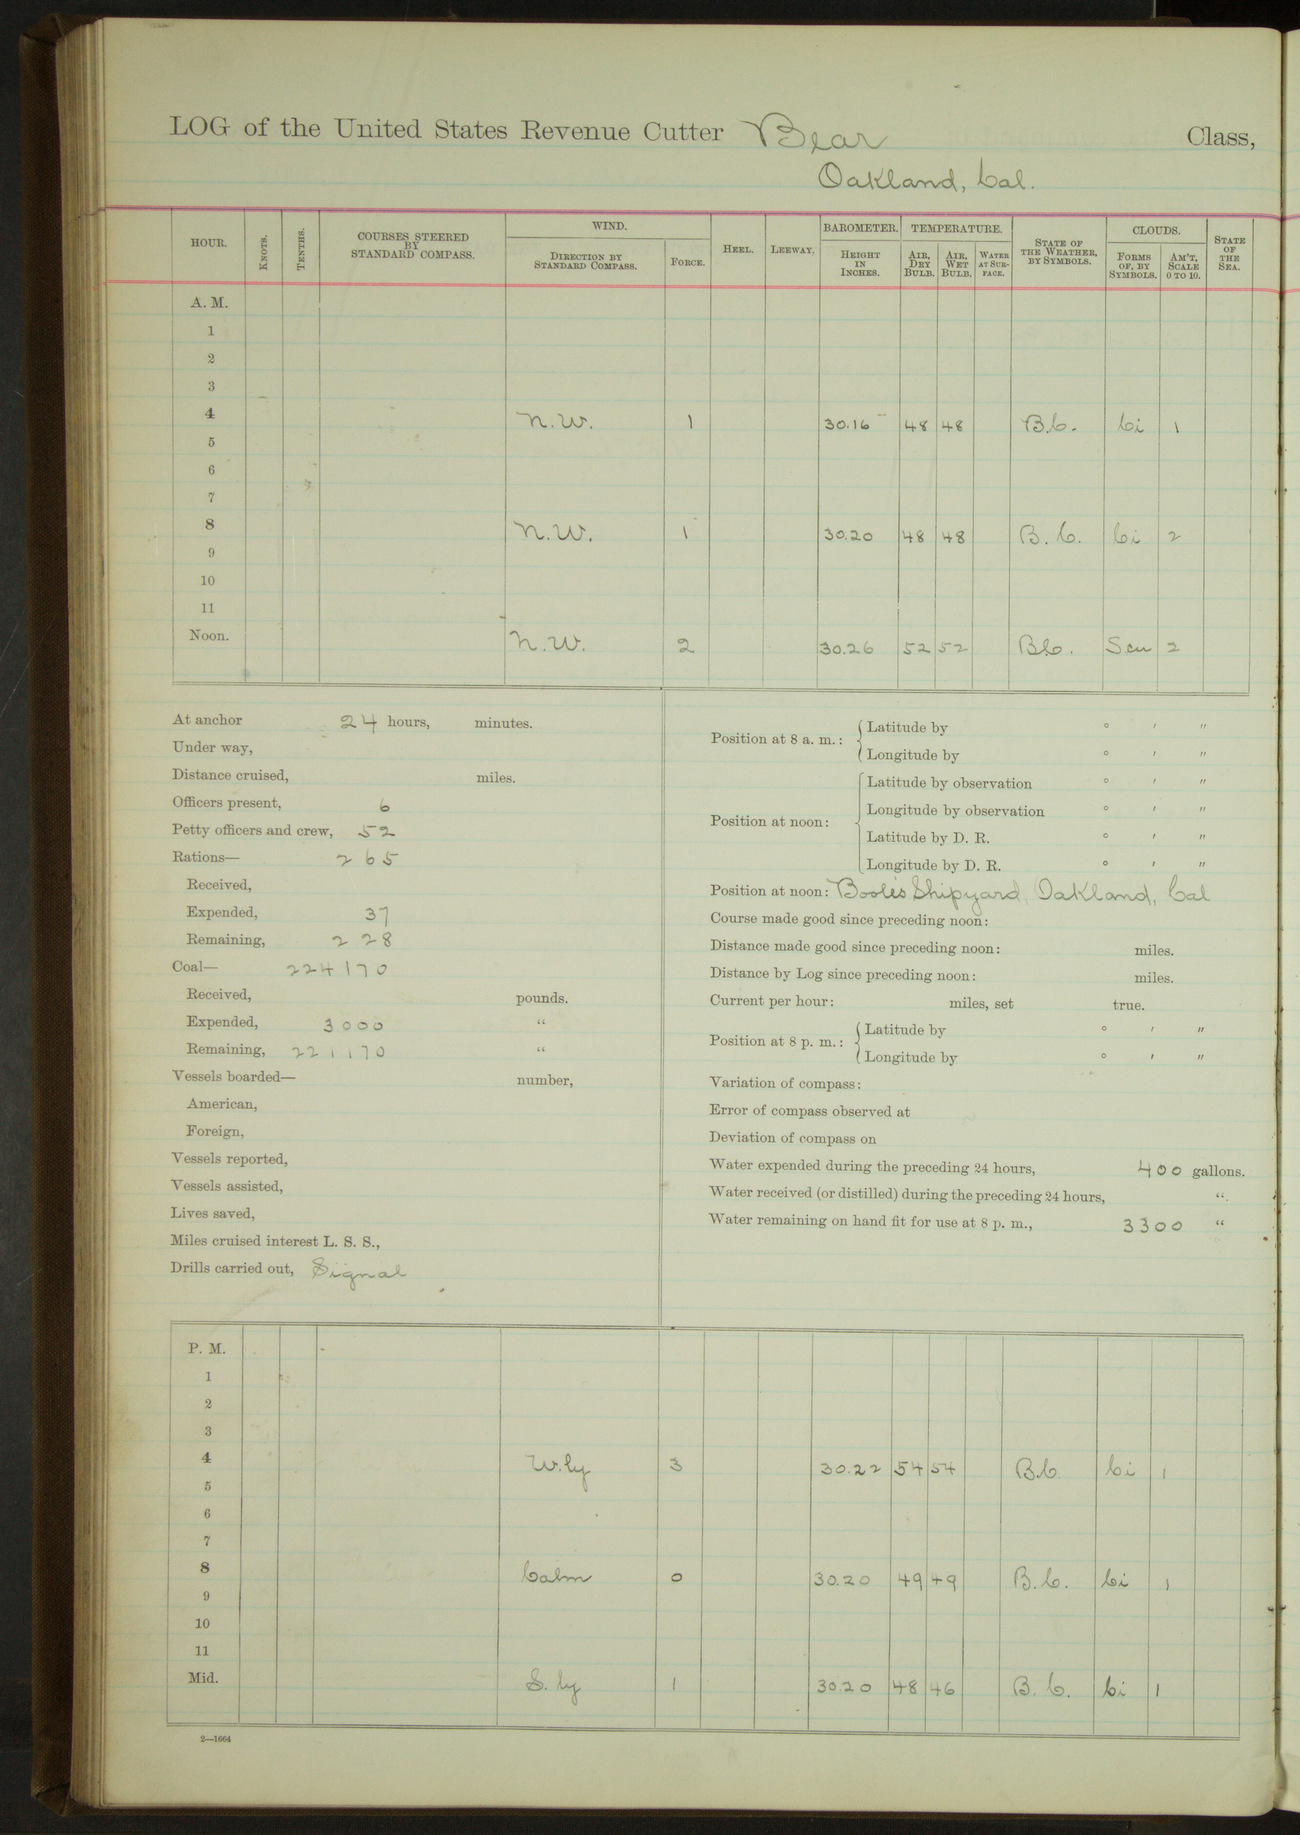 LOG of the United States Revenue Cutter Bear Class,
Oakland, Cal.
HOUR. KNOTS. TENTHS. COURSES STEERED BY STANDARD COMPASS. WIND. DIRECTION BY STANDARD COMPASS. FORCE. HEEL. LEEWAY. BAROMETER. HEIGHT IN INCHES. TEMPERATURE. AIR, DRY BULB. AIR, WET BULB. WATER AT SURFACE. STATE OF THE WEATHER, BY SYMBOLS. CLOUDS. FORMS OF, BY SYMBOLS. AM'T, SCALE 0 TO 10. STATE OF THE SEA.
A. M.
1
2
3
4 N.W. 1 30.16 48 48 B.C. Ci 1
5
6
7
8 N.W. 1 30.20 48 48 B.C. Ci 2
9
10
11
Noon. N.W. 2 30.26 52 52 B.C. Scu 2
At anchor 24 hours, minutes.
Under way,
Distance cruised, miles.
Officers present, 6
Petty officers and crew, 52
Rations— 265
Received,
Expended, 37
Remaining, 228
Coal— 224170
Received, pounds.
Expended, 3000 "
Remaining, 221170 "
Vessels boarded— number,
American,
Foreign,
Vessels reported,
Vessels assisted,
Lives saved,
Miles cruised interest L. S. S.,
Drills carried out, Signal
Position at 8 a. m.: Latitude by ° ′ ″
Longitude by ° ′ ″
Position at noon: Latitude by observation ° ′ ″
Longitude by observation ° ′ ″
Latitude by D. R. ° ′ ″
Longitude by D. R. ° ′ ″
Position at noon: Boole's Shipyard, Oakland, Cal
Course made good since preceding noon:
Distance made good since preceding noon: miles.
Distance by Log since preceding noon: miles.
Current per hour: miles, set true.
Position at 8 p. m.: Latitude by ° ′ ″
Longitude by ° ′ ″
Variation of compass:
Error of compass observed at
Deviation of compass on
Water expended during the preceding 24 hours, 400 gallons.
Water received (or distilled) during the preceding 24 hours, "
Water remaining on hand fit for use at 8 p. m., 3300 "
P. M.
1
2
3
4 W.ly 3 30.22 54 54 B.C. Ci 1
5
6
7
8 Calm 0 30.20 49 49 B.C. Ci 1
9
10
11
Mid. S.ly 1 30.20 48 46 B.C. Ci 1
2—1664